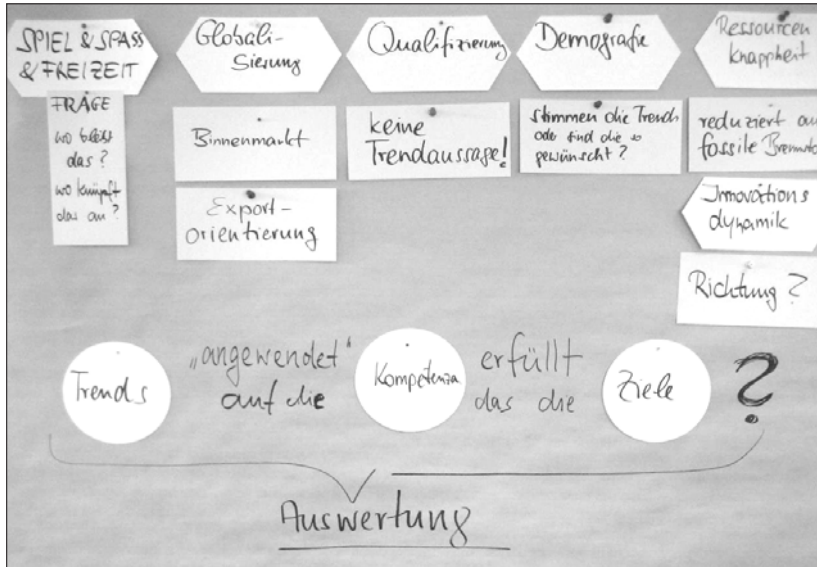 SPIEL & SPASS
& FREIZEIT
FRAGE
wo bleibt
das?
wo knüpft
das an?
Globali-
sierung
Binnenmarkt
Export-
orientierung
Qualifizierung
keine
Trendaussage!
Demografie
stimmen die Trends
oder sind die so
gewünscht?
Ressourcen
knappheit
reduziert auf
fossile
Innovations
dynamik
Richtung?
Trends
„angewendet“
auf die
Kompetenza
erfüllt
das die
Ziele
?
Auswertung